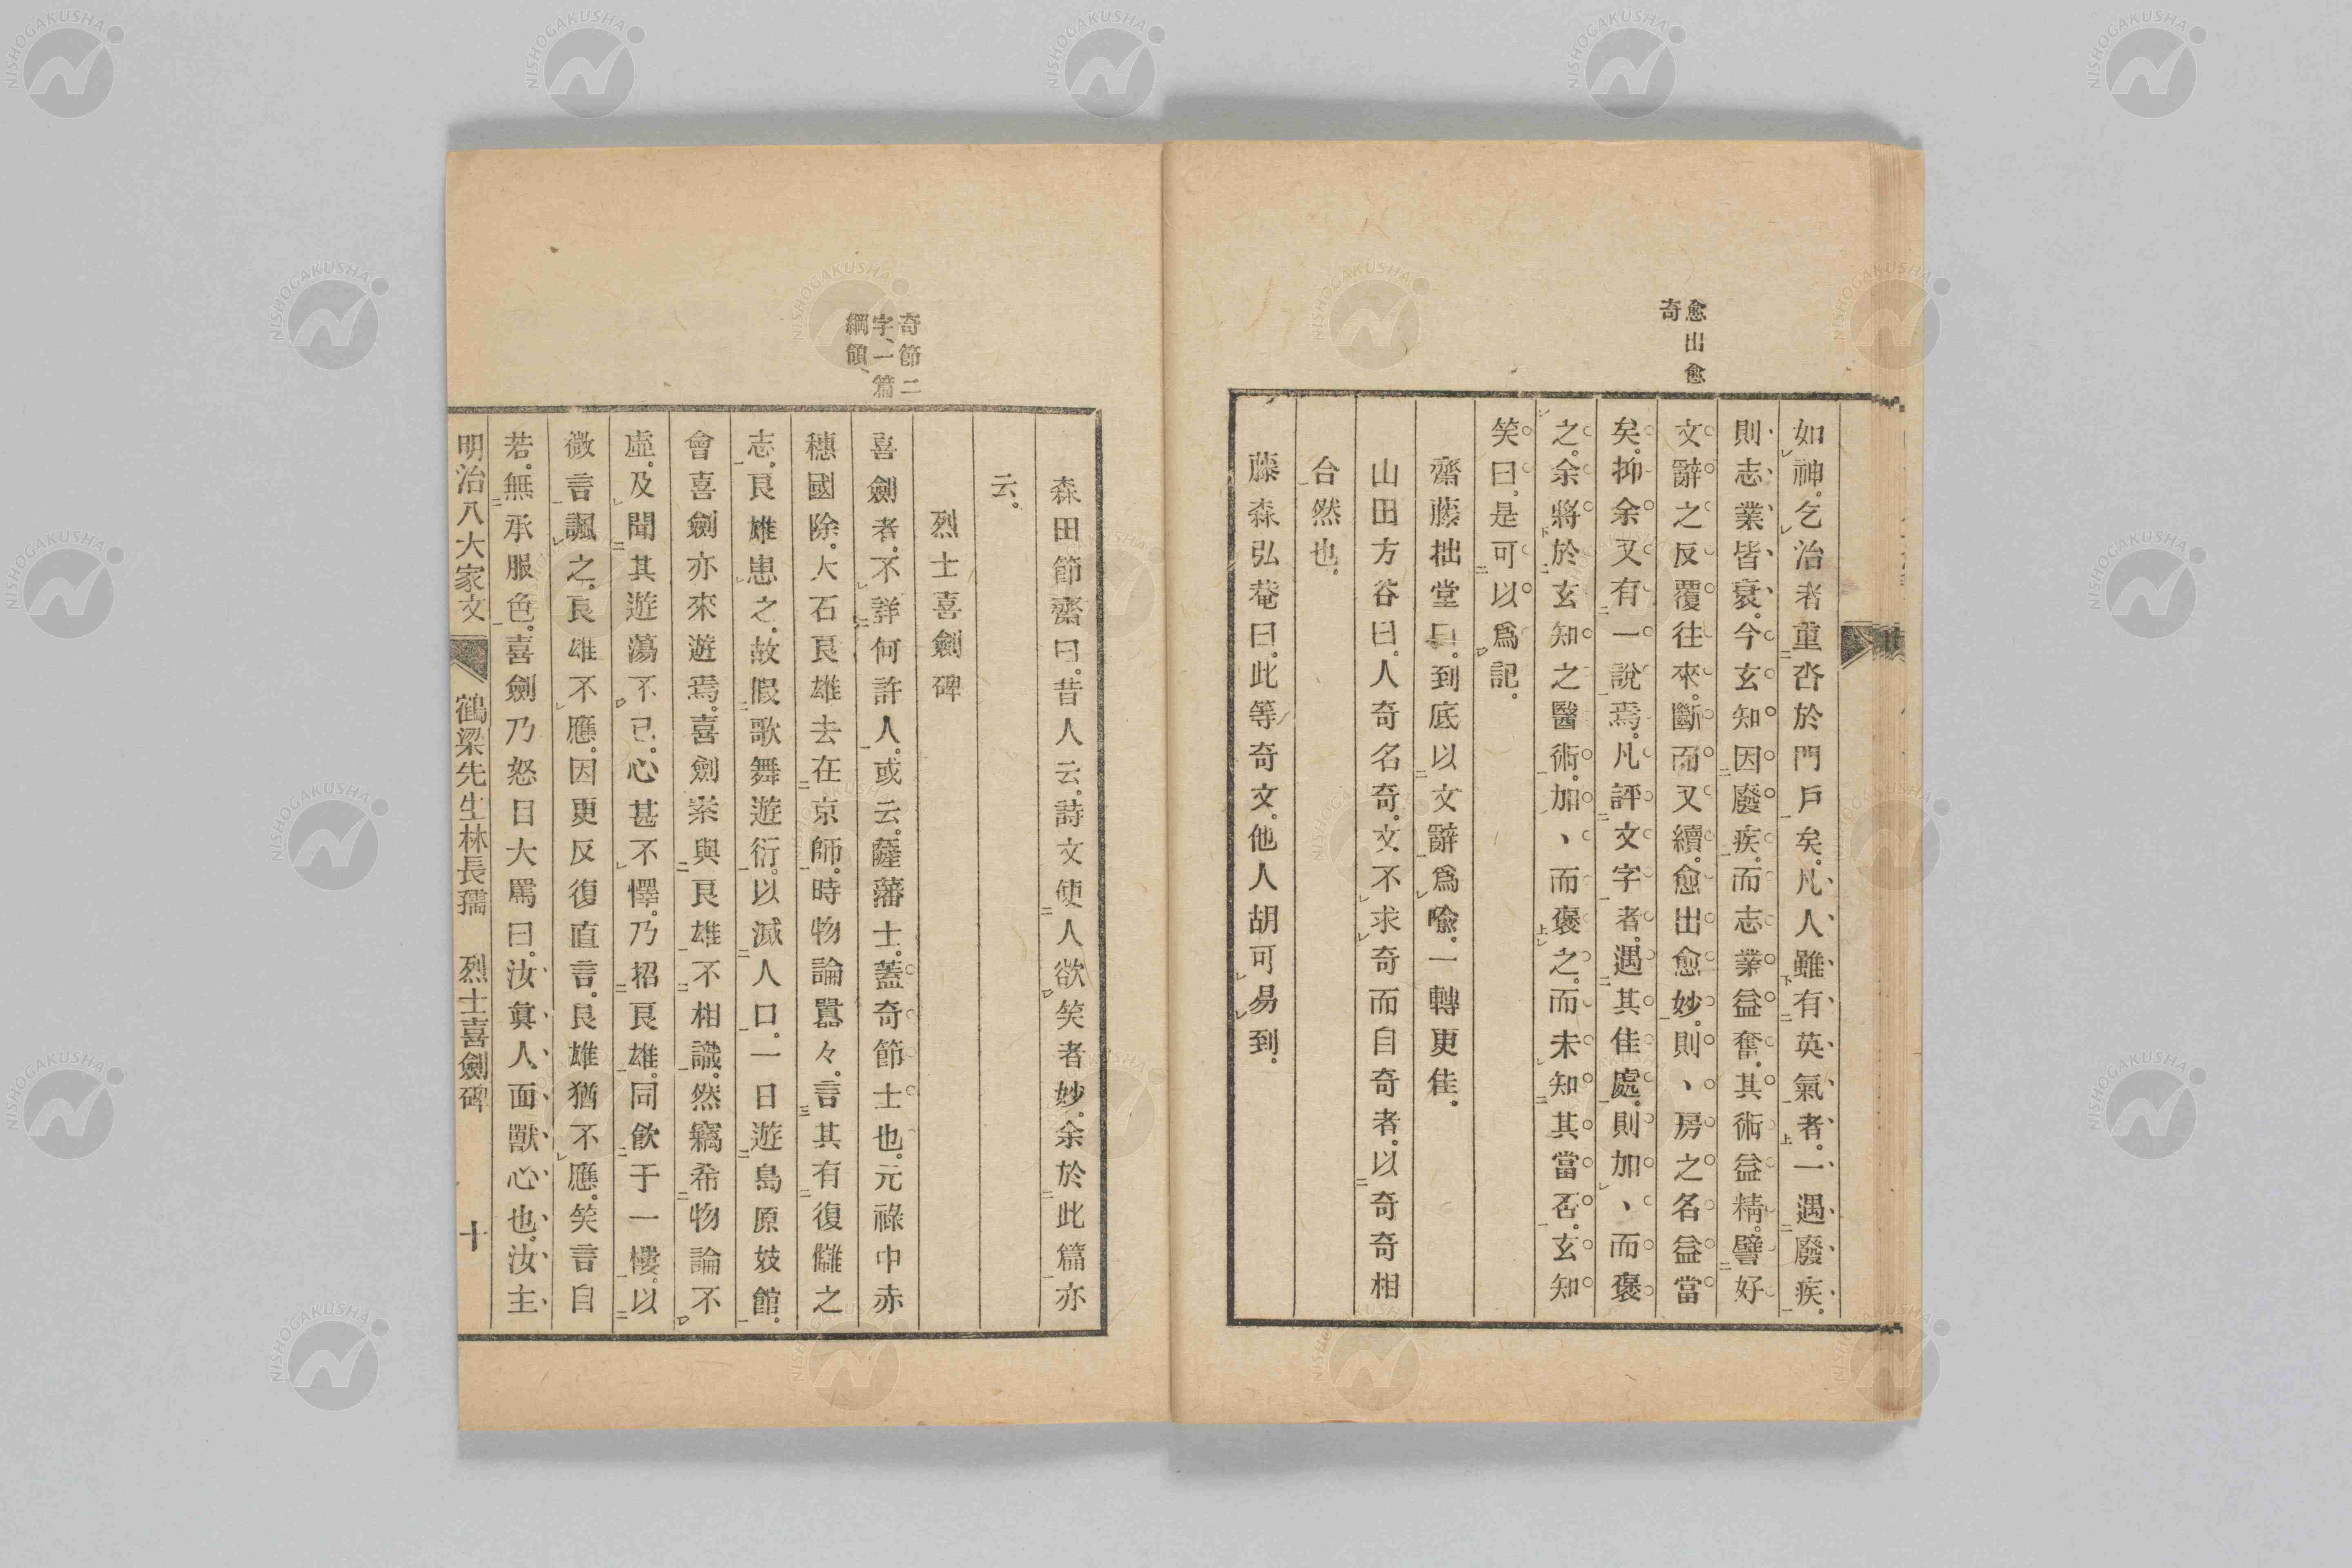 愈出愈
奇
如神。乞治者重沓於門戶矣。凡人雖有英氣者。一遇廢疾。
則志業皆衰。今玄知因廢疾。而志業益奮。其術益精。譬好
文辭之反覆往來。斷而又續。愈出愈妙。則、房之名益當
矣。抑余又有一說焉。凡評文字者。遇其佳處。則加、而褒
之。余將於玄知之醫術。加、而褒之。而未知其當否。玄知
笑曰。是可以爲記。
齋藤拙堂曰。到底以文辭爲喩。一轉更佳。
山田方谷曰。人奇名奇。文不求奇而自奇者。以奇奇相
台然也。
藤森弘菴曰。此等奇文。他人胡可易到。
奇節二
字、一篇
綱領、
森田節齋曰。昔人云。詩文使人欲笑者妙。余於此篇亦
云。
烈士喜劍碑
喜劍者。不詳何許人。或云。薩藩士。蓋奇節士也。元祿中赤
穗國除。大石良雄去在京師。時物論囂々。言其有復讎之
志。良雄患之。故假歌舞遊衍。以滅人口。一日遊島原妓館。
會喜劍亦來遊焉。喜劍素與良雄不相識。然竊希物論不
虛。及聞其遊蕩不已。心甚不懌。乃招良雄。同飮于一樓。以
微言諷之。良雄不應。因更反復直言。良雄猶不應。笑言自
若。無承服色。喜劍乃怒目大罵曰。汝眞人面獸心也。汝主
明治八大家文 鶴梁先生林長孺 烈士喜劍碑 十
NISHOGAKUSHA